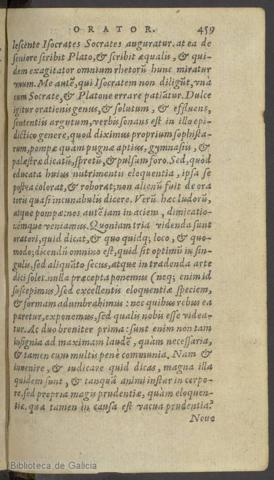 ORATOR. 459
lescente Isocrates Socrates auguratur. at ea de
seniore scribit Plato, & scribit æqualis, & qui-
dem exagitator omnium rhetorũ hunc miratur
vnum. Me autẽ, qui Isocratem non diligũt, vnà
cum Socrate, & Platone errare patiãtur. Dulce
igitur orationis genus, & solutum, & effluens,
sententiis argutum, verbis sonans est in illo epi-
dictico genere, quod diximus proprium sophista-
rum, pompæ quam pugnæ aptius, gymnasiis, &
palæstræ dicatũ, spretũ, & pulsum foro. Sed, quòd
educata huius nutrimentis eloquentia, ipsa se
postea colorat, & roborat: non alienũ fuit de ora
toris quasi incunabulis dicere. Verũ hæc ludorũ,
atque pompæ: nos autẽ iam in aciem, dimicatio-
nemque veniamus. Quoniam tria videnda sunt
oratori, quid dicat, & quo quidq; loco, & quo-
modo; dicendũ omnino est, quid sit optimũ in sin-
gulis, sed aliquãto secus, atque in tradenda arte
dici solet. nulla præcepta ponemus (neq; enim id
suscepimus) sed excellentis eloquentiæ speciem,
& formam adumbrabimus: nec quibus rebus ea
paretur, exponemus, sed qualis nobis esse videa-
tur. Ac duo breuiter prima: sunt enim non tam
insignia ad maximam laudẽ, quàm necessaria,
& tamen cum multis penè communia. Nam &
inuenire, & iudicare quid dicas, magna illa
quidem sunt, & tanquã animi instar in corpo-
re, sed propria magis prudentiæ, quàm eloquen-
tiæ. qua tamen in causa est vacua prudentia?
Noue
Biblioteca de Galicia